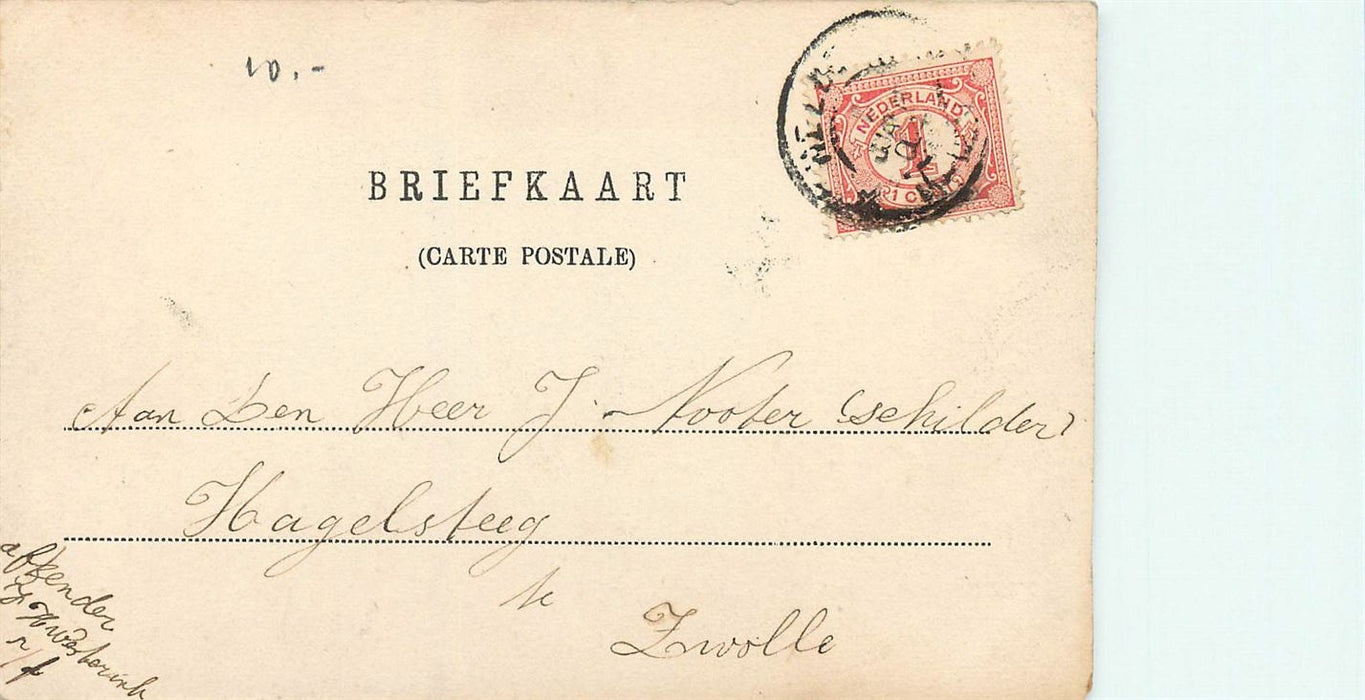 10.-
NEDERLAND
1
1 CENT
BRIEFKAART
(CARTE POSTALE)
Aan Den Heer J. Nooter (schilder)
Hagelsteeg
te
Zwolle
afzender